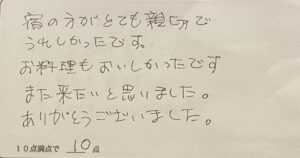 宿の方がとても親切で
うれしかったです。
お料理もおいしかったです
また来たいと思いました。
ありがとうございました。
10点満点で 10 点